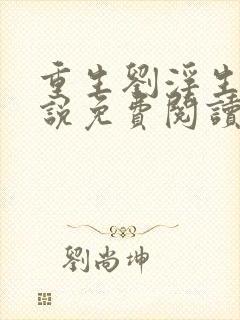 重生劉淫生
說免費閱讀
劉尚坤